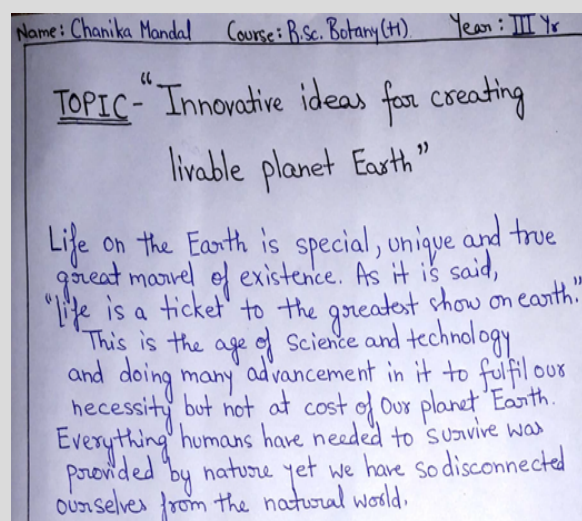 Name: Chanika Mandal Course: B.Sc. Botany (H) Year: III Yr
TOPIC- "Innovative ideas for creating
livable planet Earth"
Life on the Earth is special, unique and true
great marvel of existence. As it is said,
"life is a ticket to the greatest show on earth."
This is the age of Science and technology
and doing many advancement in it to fulfil our
necessity but not at cost of Our planet Earth.
Everything humans have needed to survive was
provided by nature yet we have so disconnected
ourselves from the natural world.